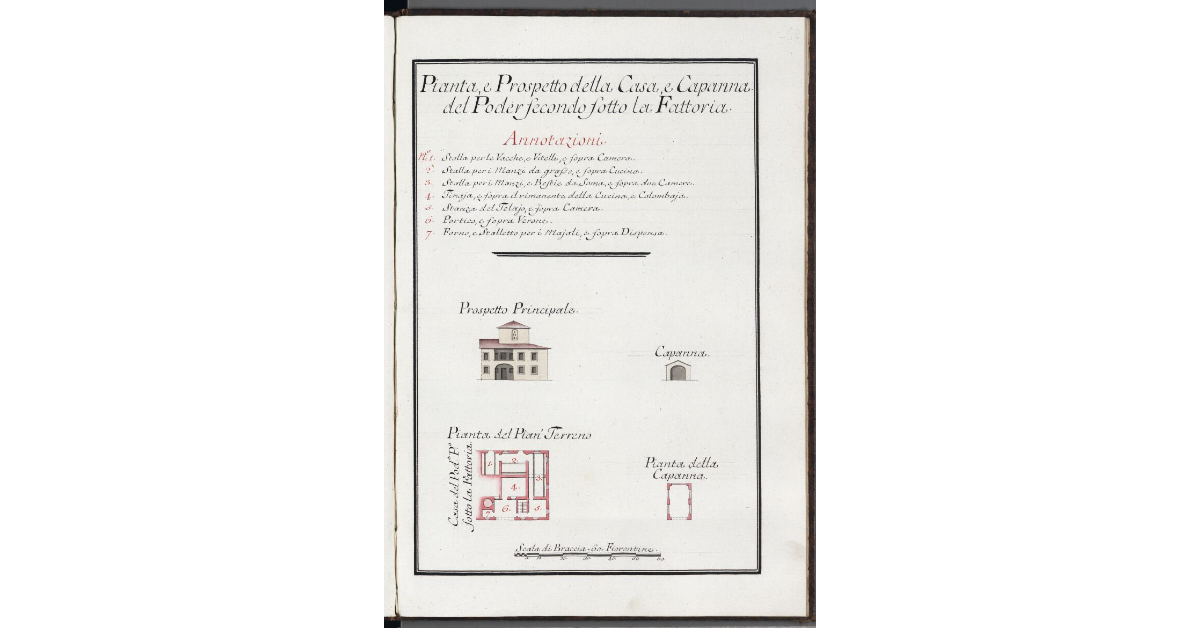 Pianta, e Prospetto della Casa, e Capanna
del Poder secondo sotto la Fattoria.
Annotazioni.
N.º 1. Stalla per le Vacche, e Vitelli, e sopra Camera.
2. Stalla per i Manzi da grasso, e sopra Cucina.
3. Stalla per i Manzi, e Bestie da Soma, e sopra due Camere.
4. Tinaja, e sopra il rimanente della Cucina, e Colombaja.
5. Stanza del Telajo, e sopra Camera.
6. Portico, e sopra Verone.
7. Forno, e Stalletto per i Majali, e sopra Dispensa.
Prospetto Principale.
Capanna.
Pianta del Pian' Terreno
Casa del Pod.º P.º
sotto la Fattoria.
1.
2.
3.
4.
5.
6.
7.
Pianta della
Capanna.
Scala di Braccia 60. Fiorentine.